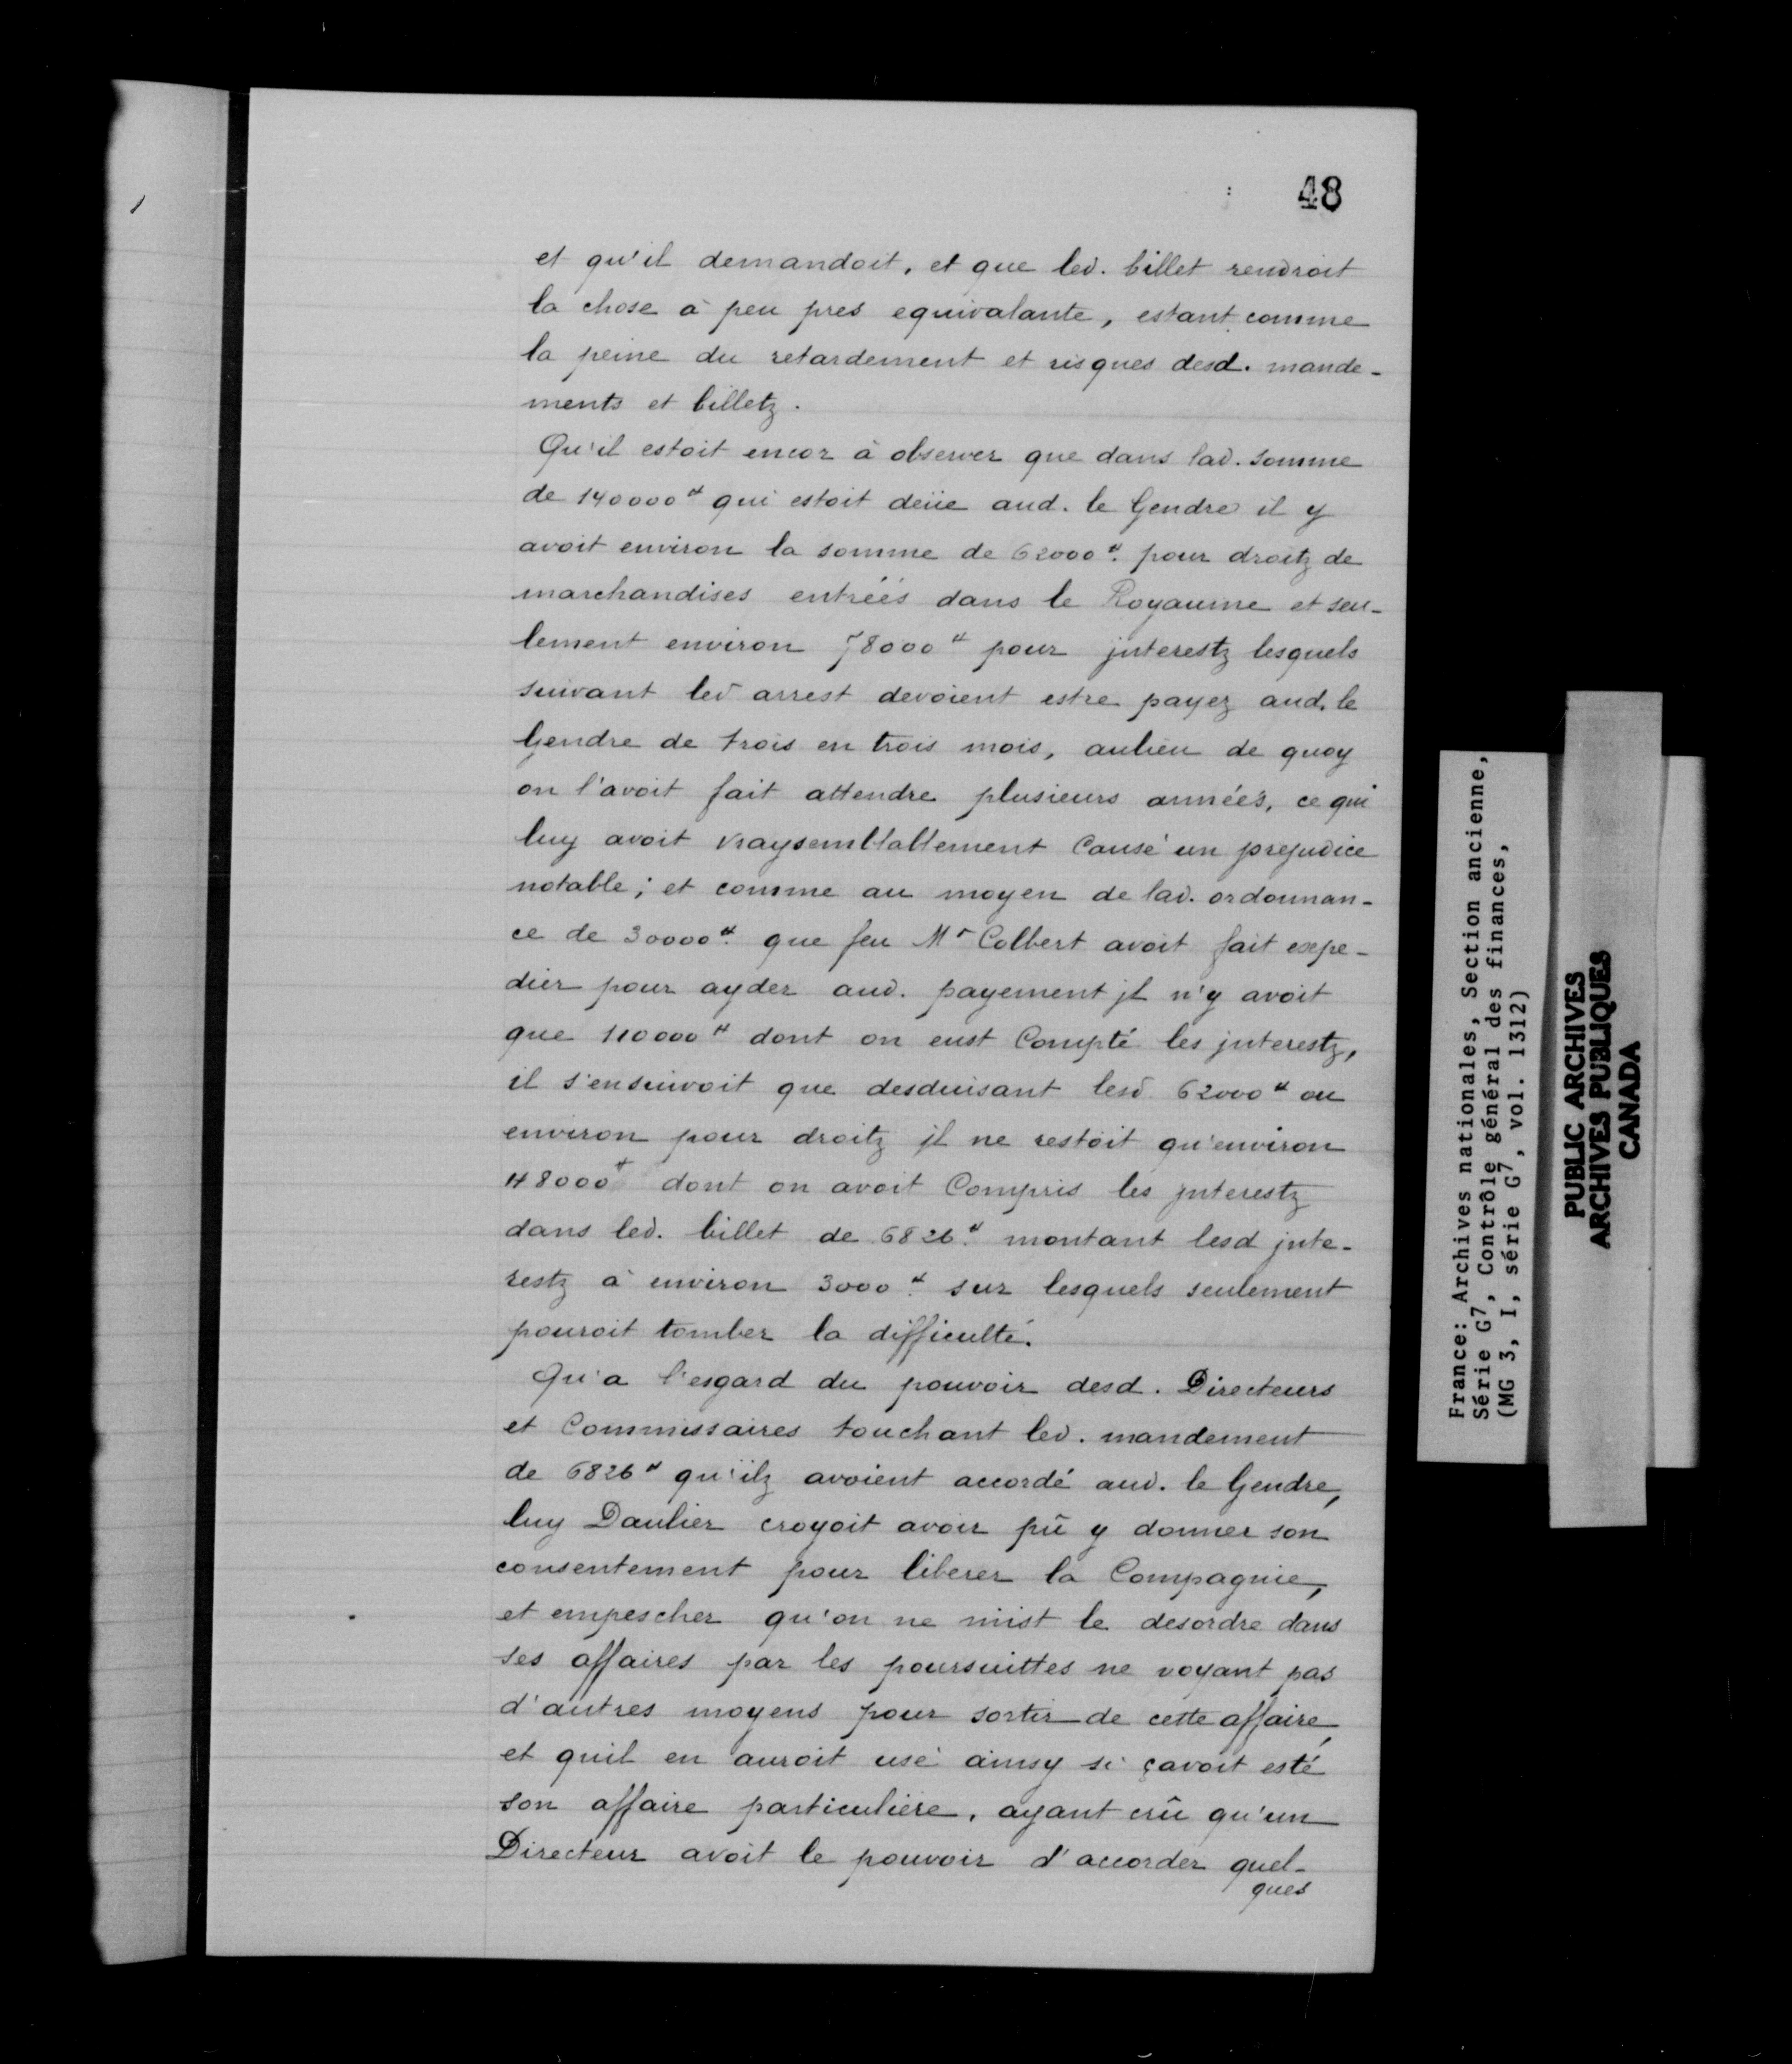 48
et qu'il demandoit, et que led. billet rendroit
la chose à peu pres equivalante, estant comme
la peine du retardement et risques desd. mande-
ments et billetz.
Qu'il estoit encor à observer que dans lad. somme
de 140000ᵗᵗ qui estoit deüe aud. le Gendre il y
avoit environ la somme de 62000ᵗᵗ. pour droitz de
marchandises entréés dans le Royaume et seu-
lement environ 78000ᵗᵗ pour jnterestz lesquels
suivant led arrest devoient estre payez aud. le
Gendre de trois en trois mois, aulieu de quoy
on l'avoit fait attendre plusieurs années, ce qui
luy avoit vraysemblablement Causé un prejudice
notable; et comme au moyen de lad. ordonnan-
ce de 30000ᵗᵗ. que feu Mʳ Colbert avoit fait expe-
dier pour ayder aud. payement jl n'y avoit
que 110000ᵗᵗ dont on eust Compté les jnterestz,
il s'ensuivoit que desduisant lesd 62000ᵗᵗ ou
environ pour droitz jl ne restoit qu'environ
48000ᵗᵗ dont on avoit Compris les jnterestz
dans led. billet de 6826ᵗᵗ. montant lesd jnte-
restz à environ 3000ᵗᵗ. sur lesquels seulement
pouroit tomber la difficulté.
Qu'a l'esgard du pouvoir desd. Directeurs
et Commissaires touchant led. mandement
de 6826ᵗᵗ qu'ilz avoient accordé aud. le Gendre,
luy Daulier croyoit avoir pû y donner son
consentement pour liberer la Compagnie,
et empescher qu'on ne mist le desordre dans
ses affaires par les poursuittes ne voyant pas
d'autres moyens pour sortir de cette affaire,
et quil en auroit usé ainsy si çavoit esté
son affaire particuliere, ayant crû qu'un
Directeur avoit le pouvoir d'accorder quel-
ques
France: Archives nationales, Section ancienne,
Série G7, Contrôle général des finances,
(MG 3, I, série G7, vol. 1312)
PUBLIC ARCHIVES
ARCHIVES PUBLIQUES
CANADA